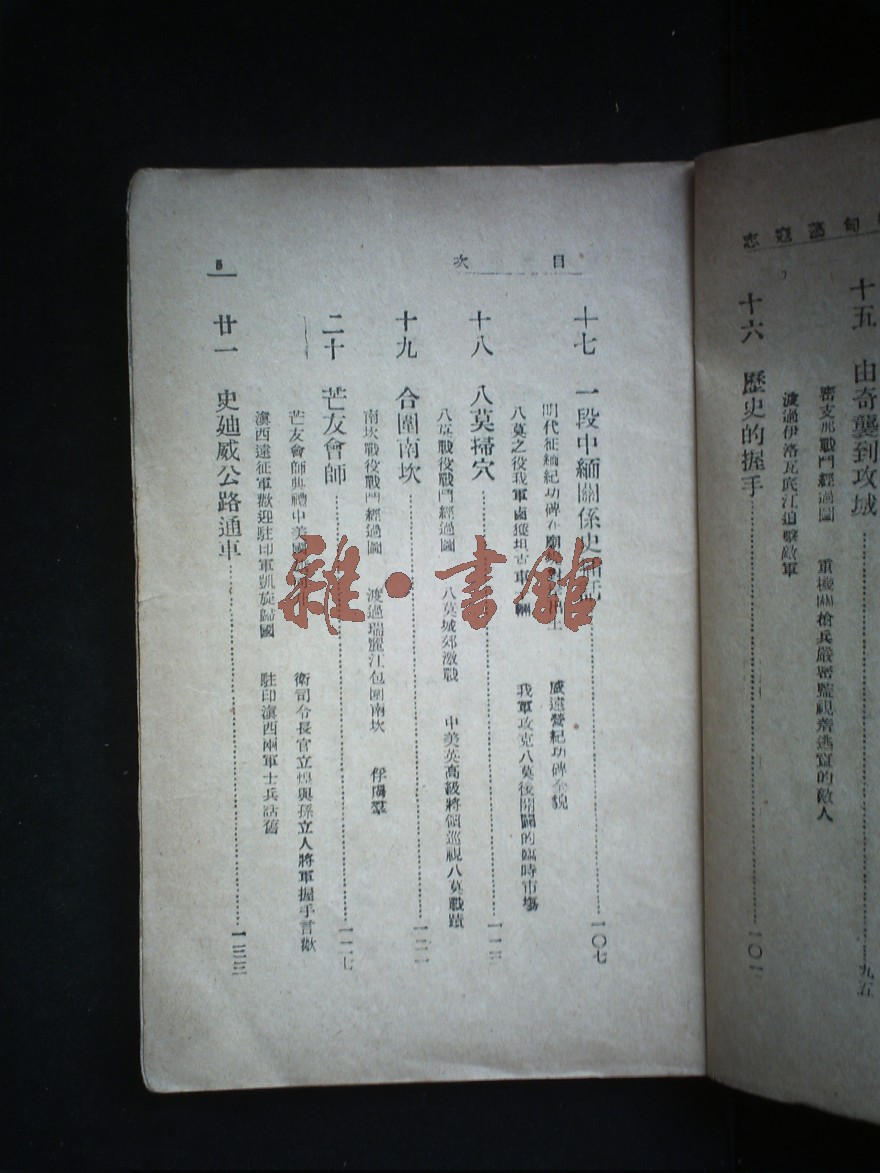 句蕩寇志
十五 由奇襲到攻城 九五
密支那戰鬥經過圖 重機關槍兵嚴密監視着逃竄的敵人
渡過伊洛瓦底江追擊敵軍
十六 歷史的握手 一〇一
目次
十七 一段中緬關係史 一〇七
明代征緬紀功碑在 上 威遠營紀功碑全貌
八莫之役我軍鹵獲坦古車 輛 我軍攻克八莫後開闢的臨時市場
十八 八莫掃穴 一一三
八莫戰役戰鬥經過圖 八莫城郊激戰 中美英高級將領巡視八莫戰蹟
十九 合圍南坎 一二一
南坎戰役戰鬥經過圖 渡過瑞麗江包圍南坎 俘虜羣
二十 芒友會師 一二七
芒友會師典禮中美國 衛司令長官立煌與孫立人將軍握手言歡
滇西遠征軍歡迎駐印軍凱旋歸國 駐印滇西兩軍士兵話舊
廿一 史廸威公路通車 一三三
5
雜·書館